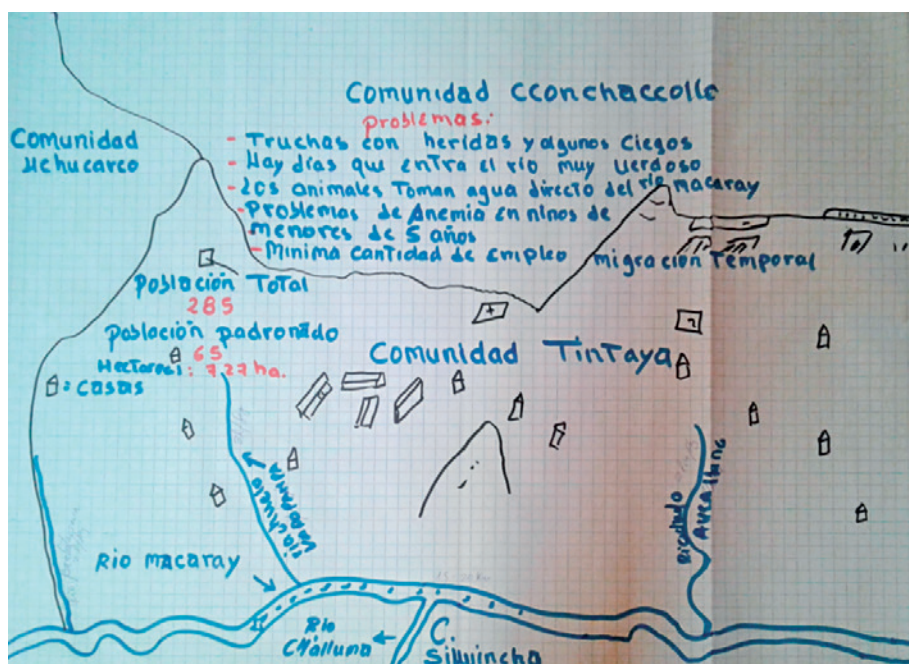 Comunidad Cconchaccollo
problemas:
Comunidad
uchucarco
- Truchas con heridas y algunos ciegos
- Hay días que entra el río muy verdoso
- Los animales Toman agua directo del río macaray
- Problemas de Anemia en ninos de
menores de 5 años
- Minima cantidad de empleo
migración Temporal
Población Total
285
Población padronado
65
Hectareas: 727 ha.
= casas
Comunidad Tintaya
Riachuelo
Rio macaray
Riachuelo
Rio
Challuma
C.
Siwincha